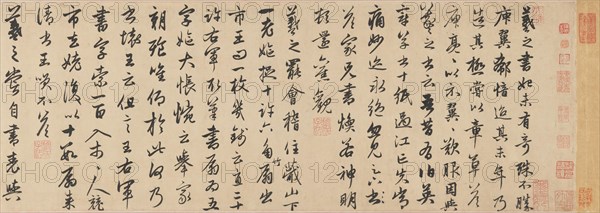 羲之書初未有奇殊不勝
庾翼郗愔迨其末年乃
造其極嘗以章草答
庾亮亮以示翼翼歎服因與
羲之書云吾昔有伯英
章草書十紙過江亡失常
痛妙迹永絕忽見足下
答家兄書煥若神明
頓還舊觀
羲之罷會稽住蕺山下
一老嫗捉十許六角竹扇出
市王問一枚幾錢云直二十
許右軍取筆書扇扇五
字嫗大悵惋云舉家
朝飡惟仰於此何乃
書壞王云但言王右軍
書字索一百入市人競
市去嫗復以十數扇來
請書王笑不答
羲之嘗自書表與